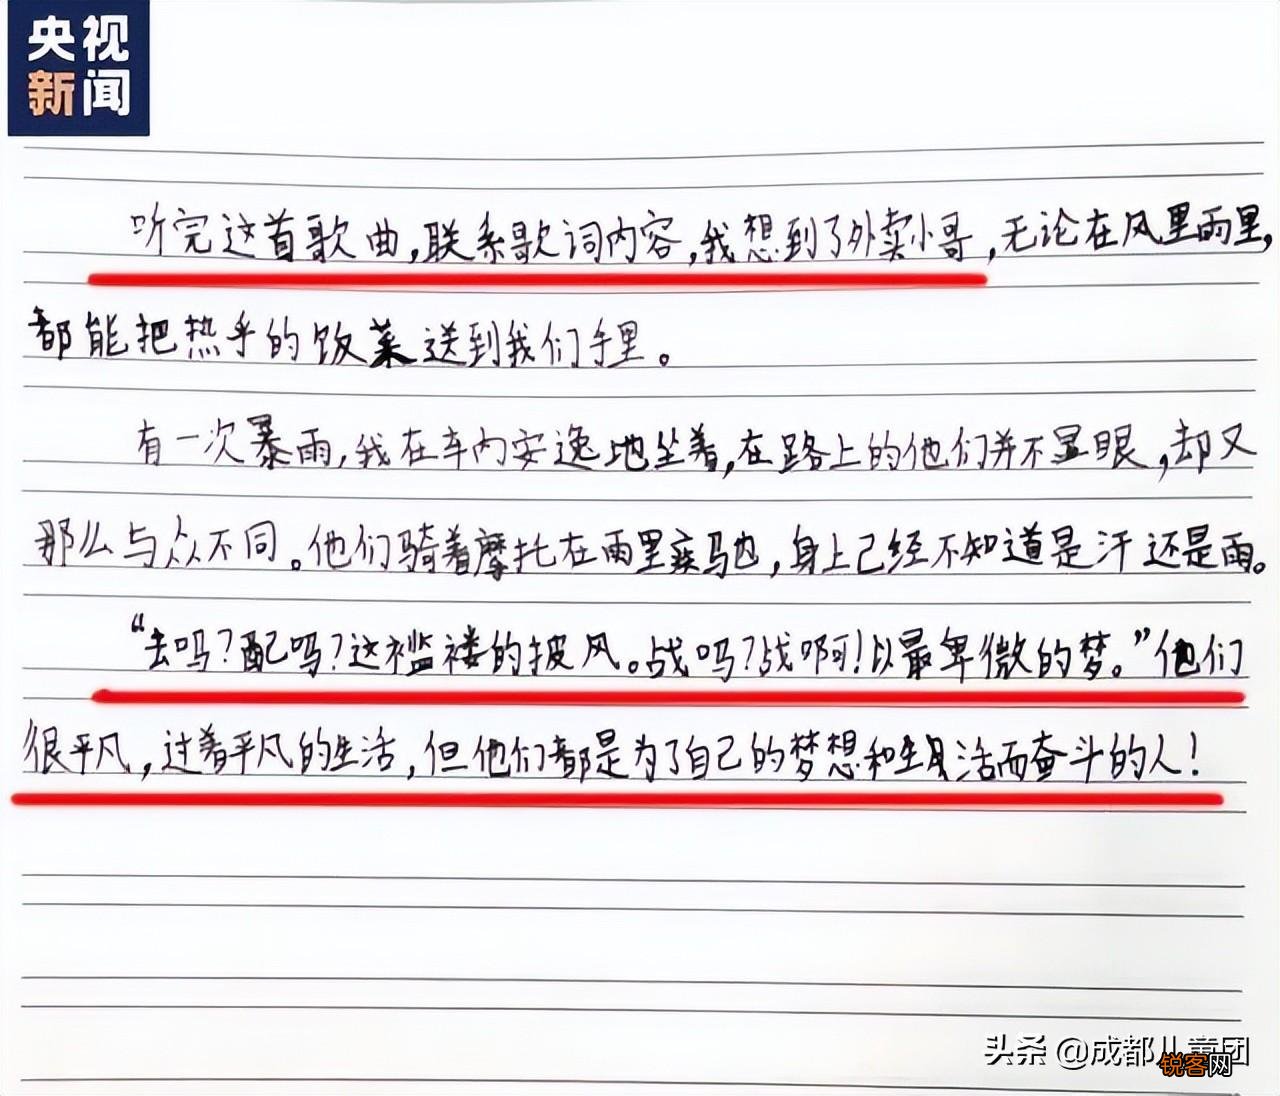 央视
新闻
听完这首歌曲,联系歌词内容,我想到了外卖小哥,无论在风里雨里,
都能把热乎的饭菜送到我们手里。
有一次暴雨,我在车内安逸地坐着,在路上的他们并不显眼,却又
那么与众不同。他们骑着摩托在雨里疾驰,身上已经不知道是汗还是雨。
“去吗?配吗?这褴褛的披风。战吗?战啊!以最卑微的梦。”他们
很平凡,过着平凡的生活,但他们都是为了自己的梦想和生活而奋斗的人!
头条 @成都儿童团
锐客网